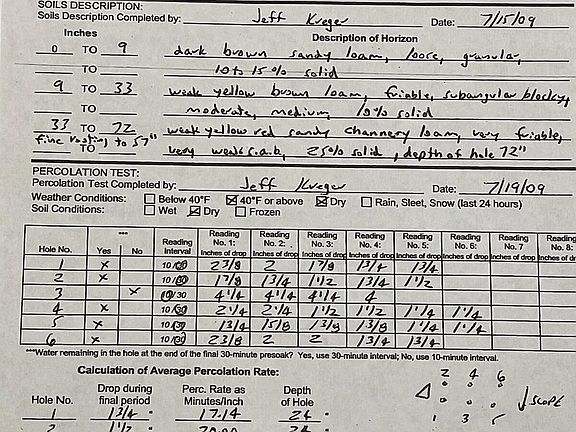 SOILS DESCRIPTION:
Soils Description Completed by: Jeff Kreger Date: 7/15/09
Inches Description of Horizon
0 TO 9 dark brown sandy loam, loose, granular,
TO 10 to 15% solid
9 TO 33 weak yellow brown loam, friable, subangular blocky,
TO moderate, medium, 10% solid
33 TO 72 weak yellow red sandy channery loam, very friable,
fine rooting to 57" TO very weak s.a.b, 25% solid, depth of hole 72"
PERCOLATION TEST:
Percolation Test Completed by: Jeff Kreger Date: 7/19/09
Weather Conditions: Below 40°F 40°F or above Dry Rain, Sleet, Snow (last 24 hours)
Soil Conditions: Wet Dry Frozen
Hole No. *** Yes No Reading Interval Reading No. 1: Inches of drop Reading No. 2: Inches of drop Reading No. 3: Inches of drop Reading No. 4: Inches of drop Reading No. 5: Inches of drop Reading No. 6: Inches of drop Reading No. 7 Inches of drop Reading No. 8: Inches of drop
1 x 10/30 2 3/8 2 1 7/8 1 3/4 1 3/4
2 x 10/30 1 7/8 1 3/4 1 1/2 1 3/4 1 1/2
3 x 10/30 4 1/4 4 1/4 4 1/4 4
4 x 10/30 2 1/4 2 1/4 1 1/2 1 1/2 1 1/4 1 1/4
5 x 10/30 1 3/4 1 5/8 1 3/8 1 3/8 1 1/4 1 1/4
6 x 10/30 2 3/8 2 2 1 3/4 1 3/4
***Water remaining in the hole at the end of the final 30-minute presoak? Yes, use 30-minute interval; No, use 10-minute interval.
Calculation of Average Percolation Rate:
Hole No. Drop during final period Perc. Rate as Minutes/Inch Depth of Hole
1 1 3/4 " 17.14 24 "
2 1 1/2 " 20.00 24 "
2 4 6
1 3 5
SLOPE